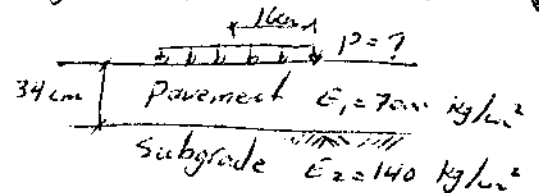 16cm
P = ?
34 cm
Pavement E₁ = 7000 kg/cm²
Subgrade E₂ = 140 kg/cm²